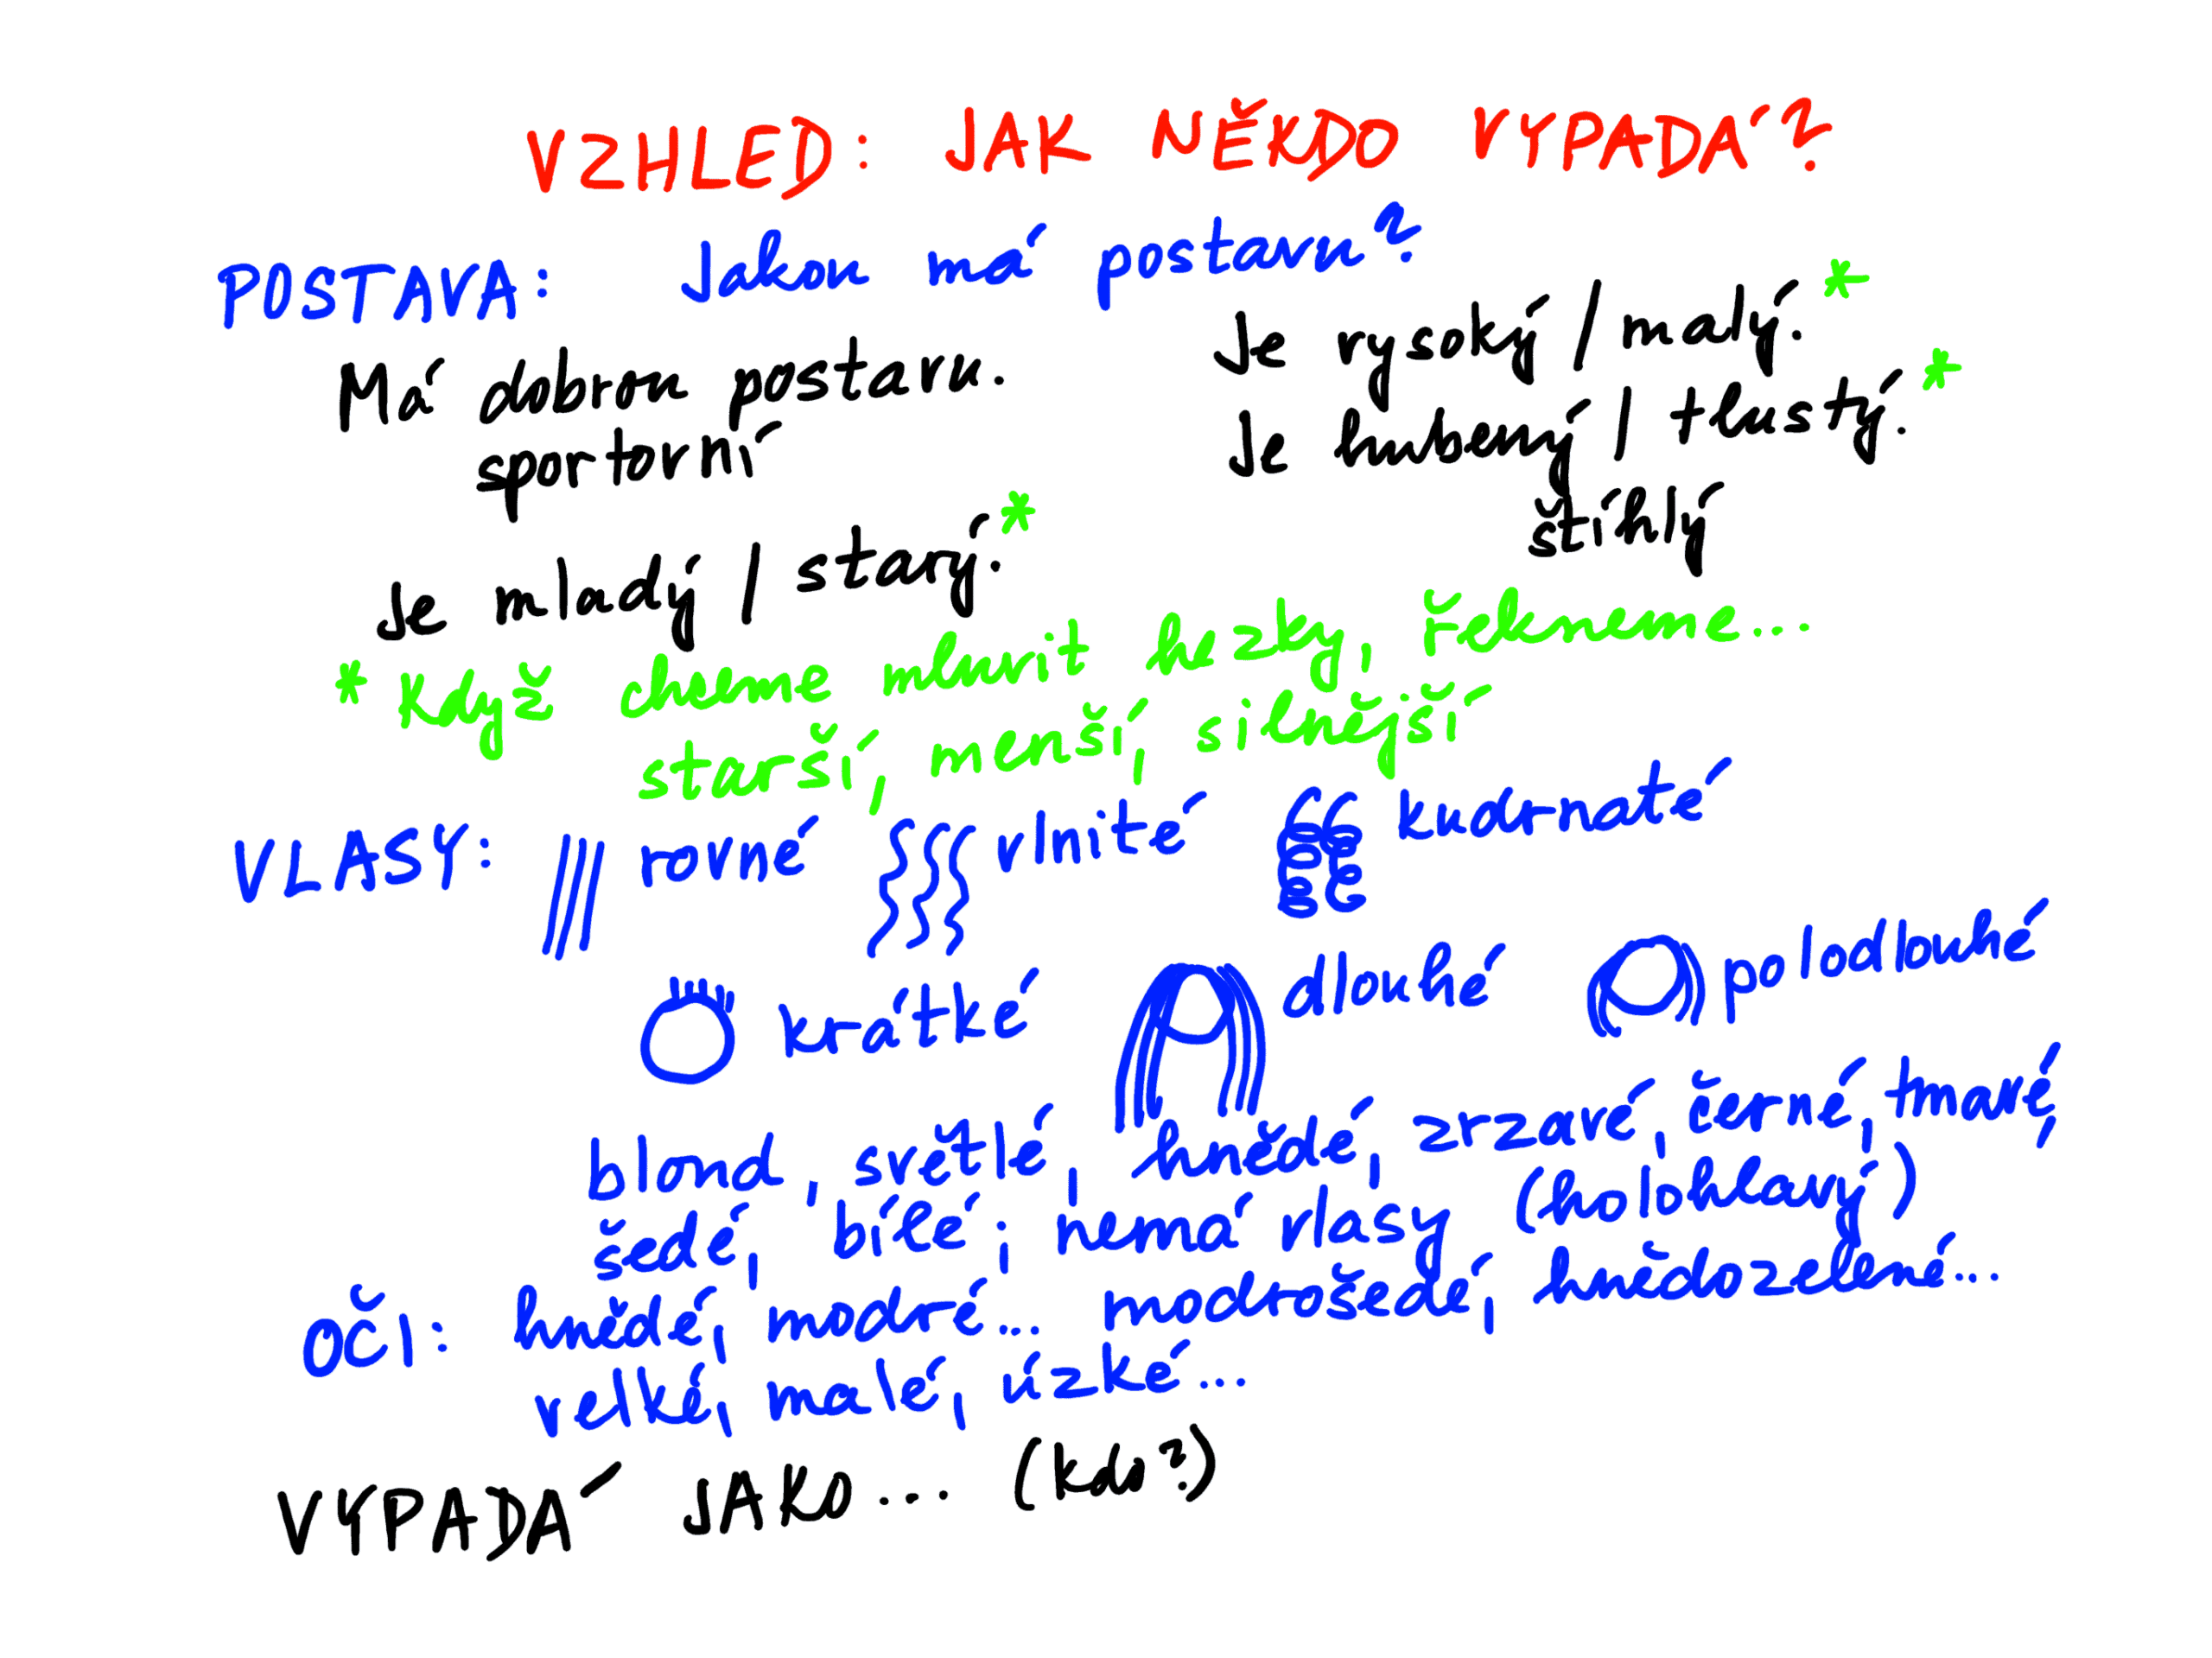 VZHLED: JAK NĚKDO VYPADÁ?
POSTAVA: Jakou má postavu?
Má dobrou postavu.
sportovní
Je vysoký / malý.*
Je hubený / tlustý.*
štíhlý
Je mladý / starý.*
* Když chceme mluvit hezky, řekneme...
starší, menší, silnější
VLASY: rovné vlnité kudrnaté
krátké dlouhé polodlouhé
blond, světlé, hnědé, zrzavé, černé, tmavé,
šedé, bílé; nemá vlasy (holohlavý)
OČI: hnědé, modré... modrošedé, hnědozelené...
velké, malé, úzké...
VYPADÁ JAKO... (kdo?)